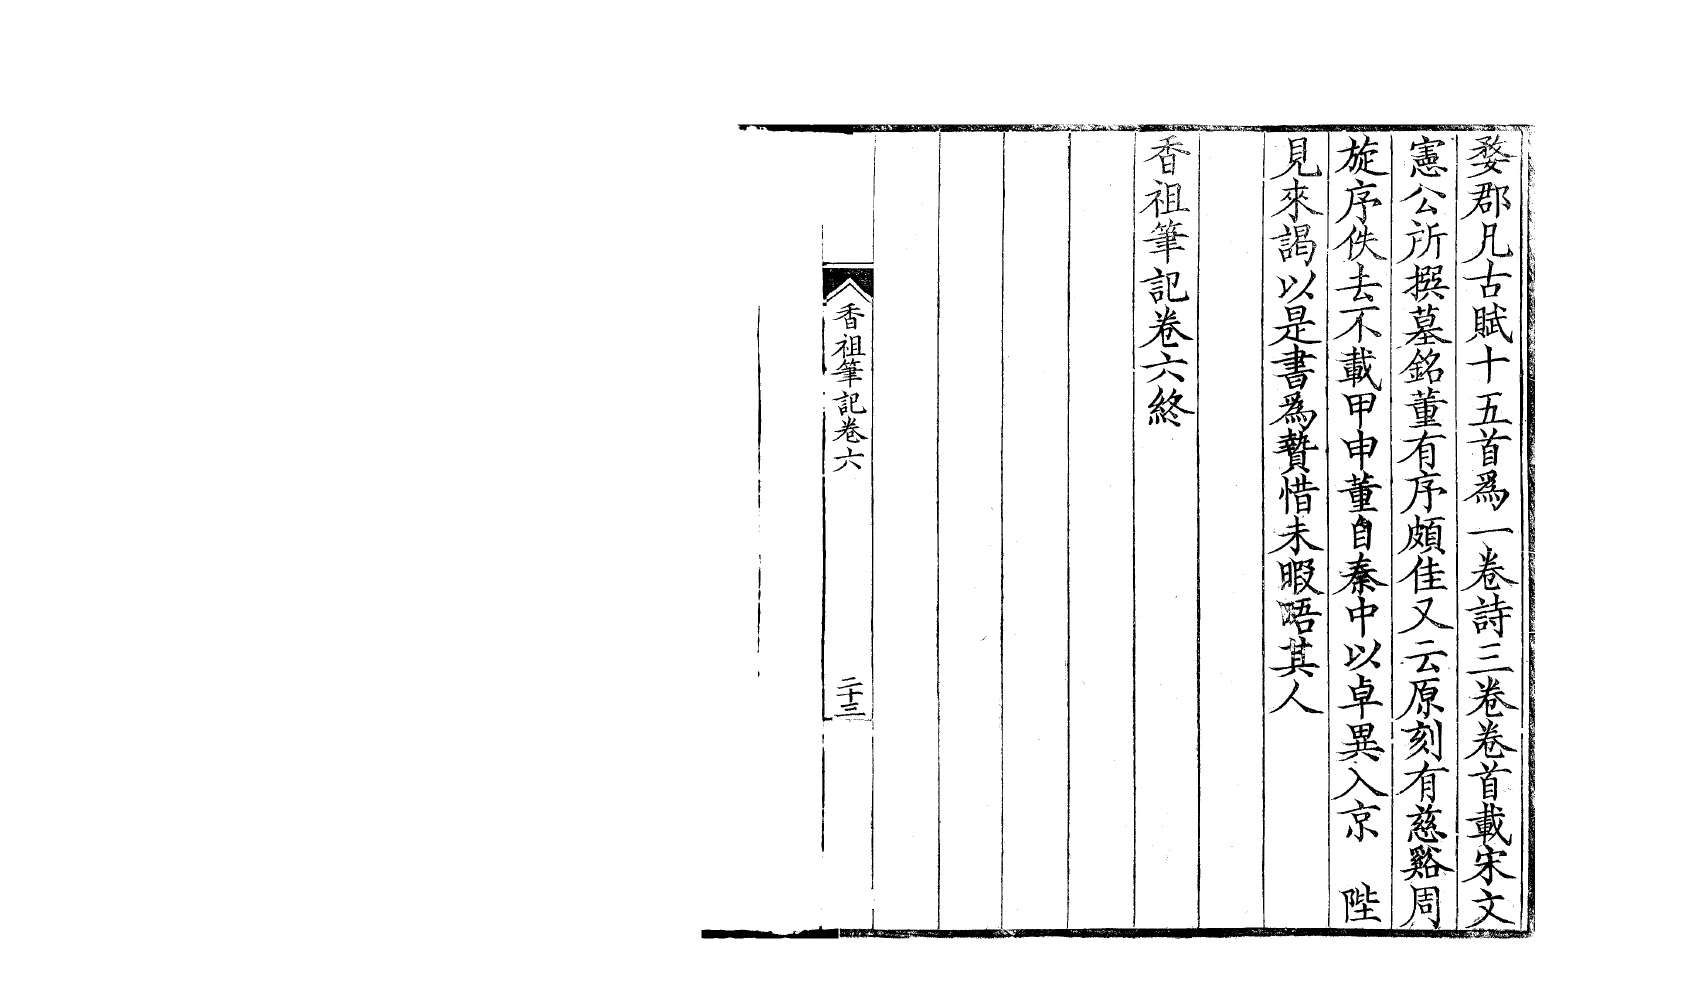 婺郡凡古賦十五首爲一卷詩三卷卷首載宋文
憲公所撰墓銘董有序頗佳又云原刻有慈谿周
旋序佚去不載甲申董自秦中以卓異入京　陛
見來謁以是書爲贄惜未暇晤其人
香祖筆記卷六終
香祖筆記卷六
二十三